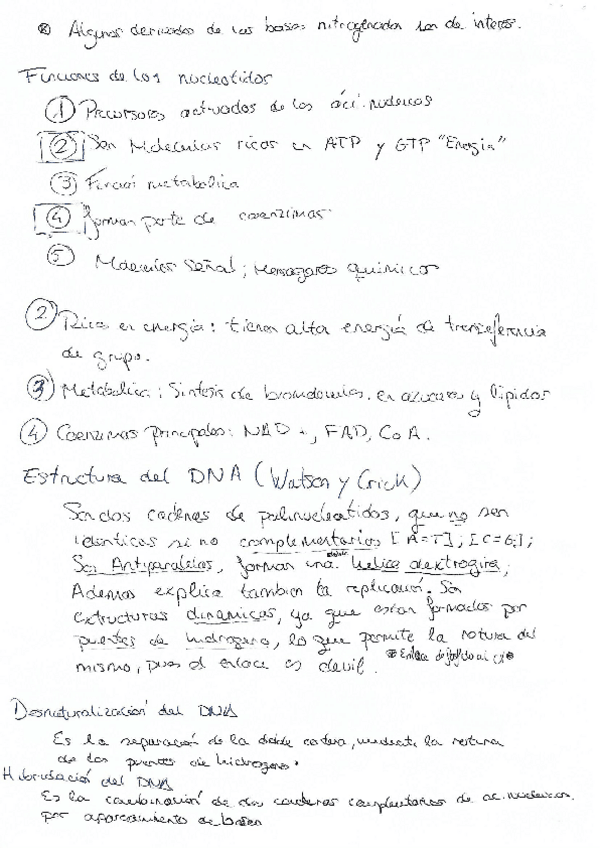 ⊗ Algunos derivados de las bases nitrogenadas son de interes.
Funciones de los nucleotidos
① Precursores activados de los áci. nucleicos
② Son Moleculas ricas en ATP y GTP "Energia"
③ Funció metabolica
④ forman parte de coenzimas
⑤ Moleculas Señal; Mensajeros químicos
② Rico en energia: tienen alta energía de transferencia
de grupo.
③ Metabolica: Sintesis de biomoleculas. en azucares y lípidos
④ Coenzimas principales: NAD+, FAD, CoA.
Estructura del DNA (Watson y Crick)
Son dos cadenas de polinucleotidos, que no son
identicas si no complementarios [A=T]; [C≡G];
Son Antiparalelas, forman una doble helice dextrogira;
Ademas explica tambien la replicación. Son
extructuras dinamicas, ya que estan formados por
puentes de hidrogeno, lo que permite la rotura del
mismo, pues el enlace es devil. *Enlace
Desnaturalización del DNA
Es la separación de la doble cadena, mediante la rotura
de los puentes de hidrogeno.
Hibridación del DNA
Es la combinación de dos cadenas complentarias de ac. nucleicos.
por apareamiento de bases